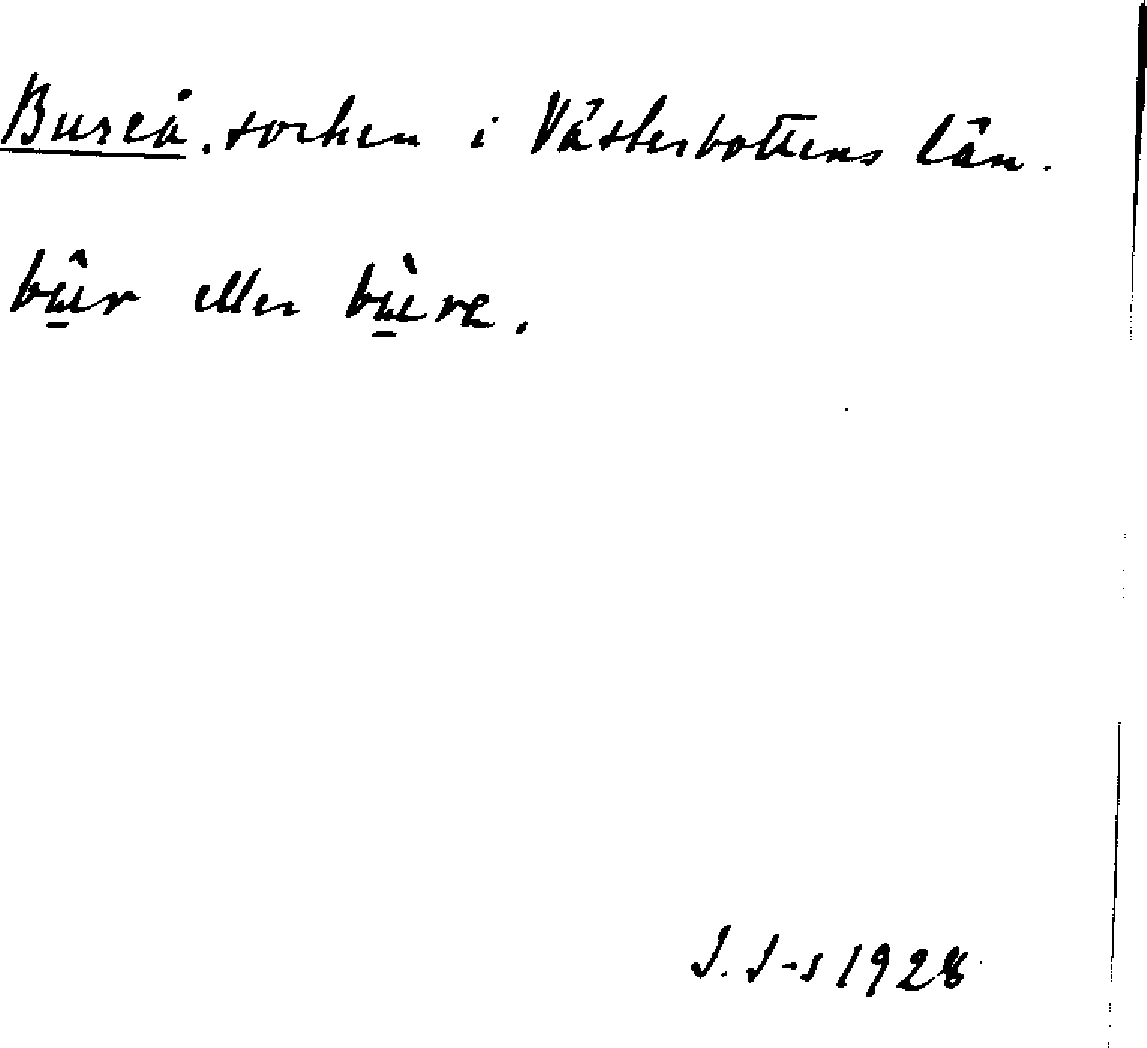 Bureå. socken i Västerbottens län.
bû̲r eller bù̲re.
J. J-s 1928